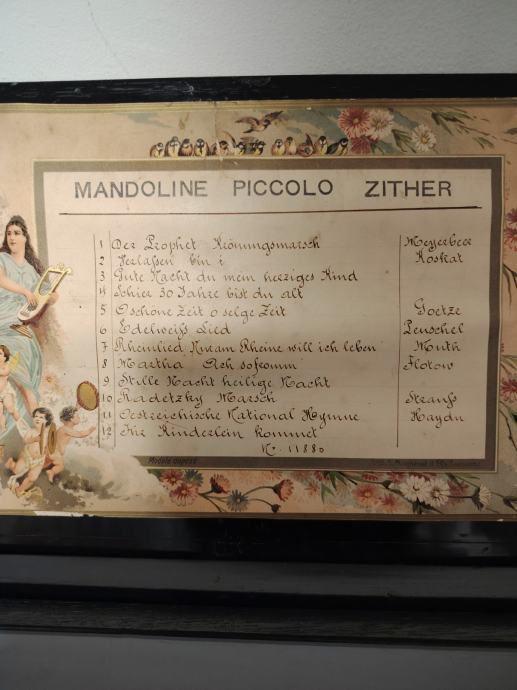 MANDOLINE PICCOLO ZITHER
1 Der Prophet Krönungsmarsch Meyerbeer
2 Verlaßen bin i Koskat
3 Gute Nacht du mein herziges Kind
4 Schier 30 Jahre bist du alt
5 O schöne Zeit o selge Zeit Goetze
6 Edelweiß Lied Peuschel
7 Rheinlied Nur am Rheine will ich leben Muth
8 Martha Ach so fromm Flotow
9 Stille Nacht heilige Nacht
10 Radetzky Marsch Strauß
11 Oestreichische National Hymne Haydn
12 Ihr Kinderlein kommet
N. 11880
Modele déposé